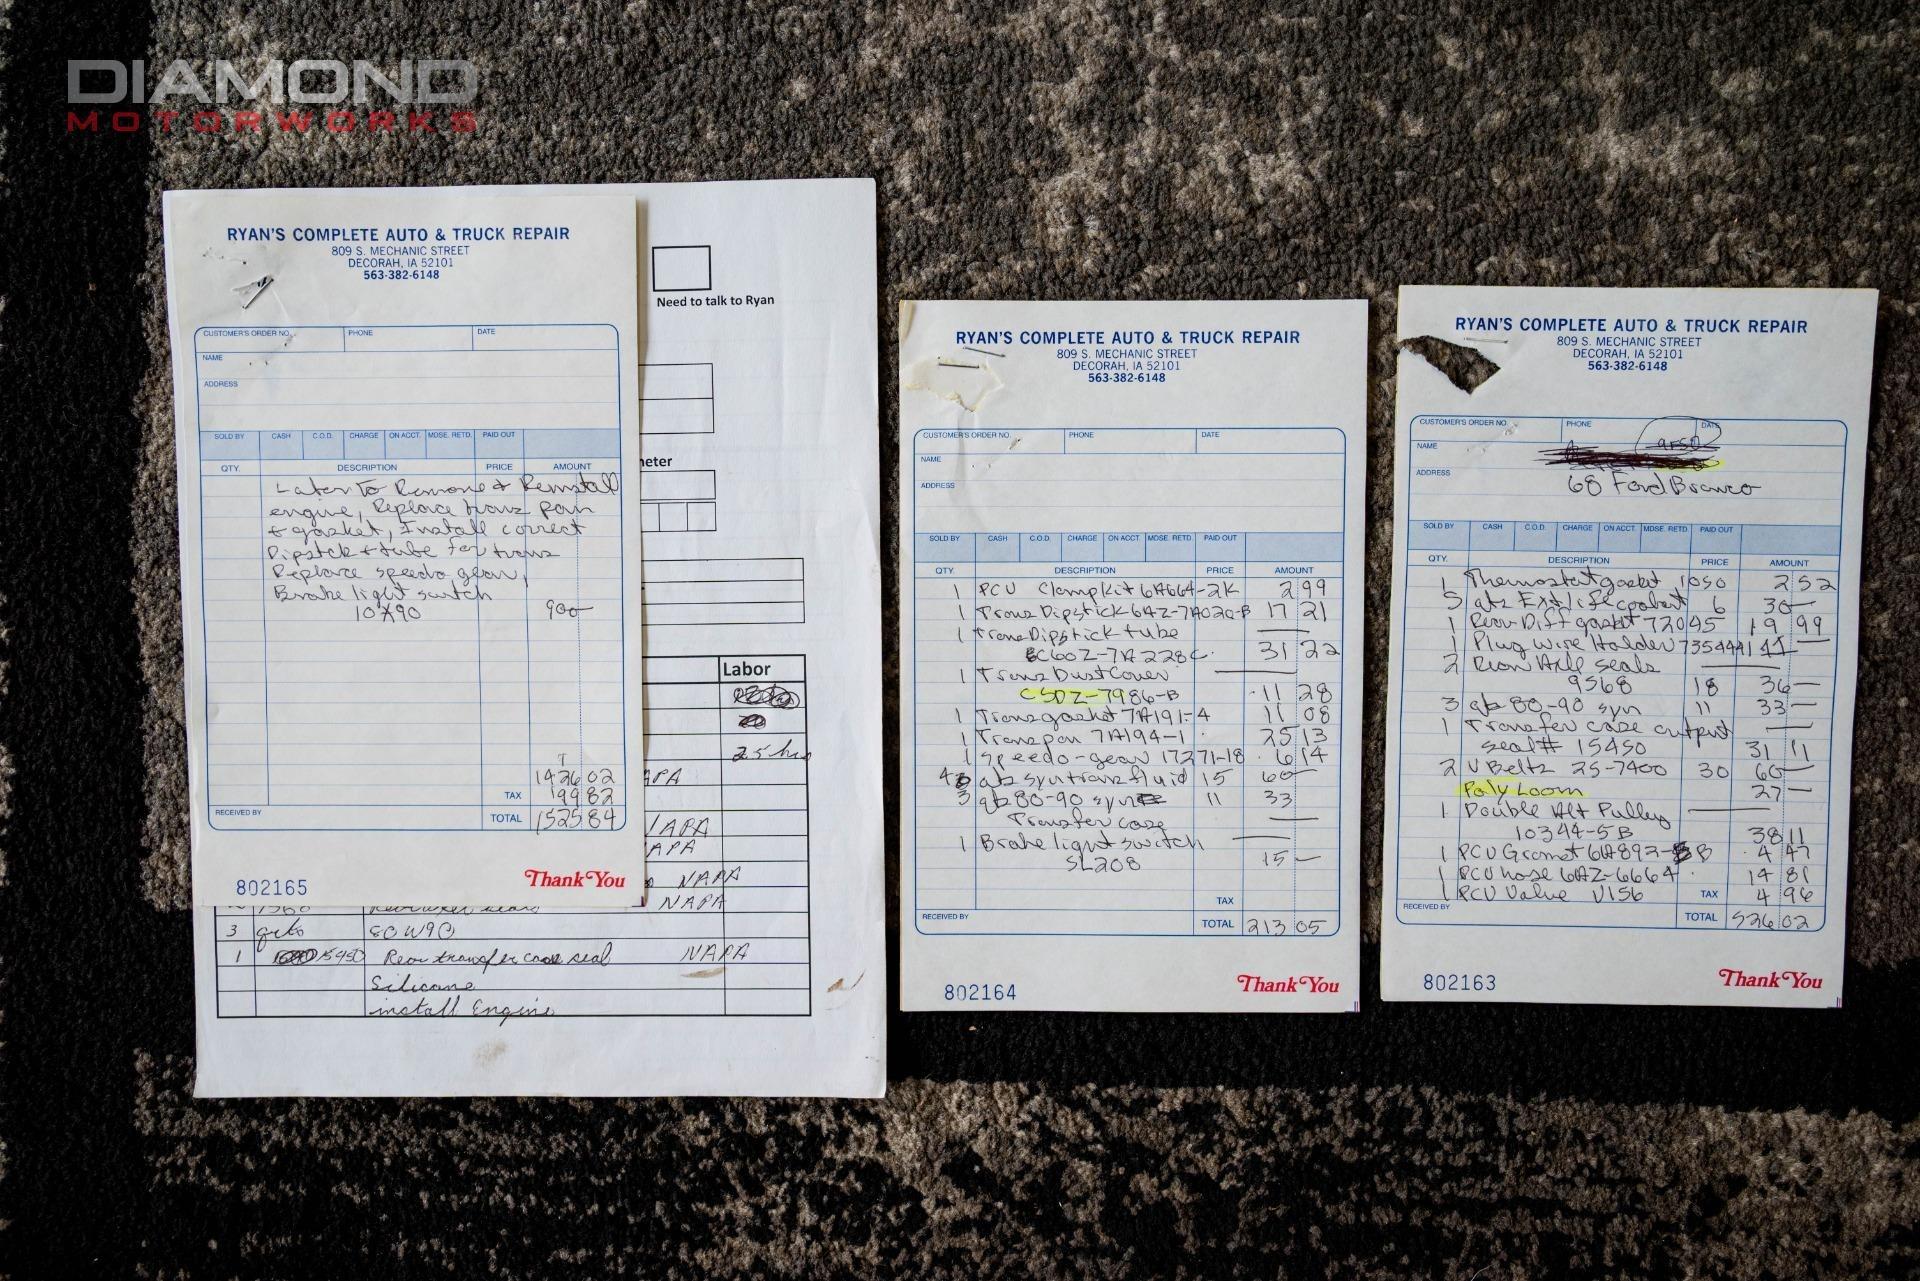 DIAMOND
MOTORWORKS
RYAN'S COMPLETE AUTO & TRUCK REPAIR
809 S. MECHANIC STREET
DECORAH, IA 52101
563-382-6148
CUSTOMER'S ORDER NO. PHONE DATE
NAME
ADDRESS
SOLD BY CASH C.O.D. CHARGE ON ACCT. MDSE. RETD. PAID OUT
QTY. DESCRIPTION PRICE AMOUNT
to Remove & Reinstall
engine, Replace trans pan
& gasket, Install correct
Dipstck & tube for trans
Replace speedo gear,
Brake light switch
10 X 90 900—
1426 02
TAX 99 82
RECEIVED BY TOTAL 1525 84
Thank You
802165
Need to talk to Ryan
meter
Labor
2.5 hrs
NAPA
NAPA
NAPA
NAPA
NAPA
3 qrts 80W90
1 15450 Rear transfer case seal NAPA
Silicone
install Engine
RYAN'S COMPLETE AUTO & TRUCK REPAIR
809 S. MECHANIC STREET
DECORAH, IA 52101
563-382-6148
CUSTOMER'S ORDER NO. PHONE DATE
NAME
ADDRESS
SOLD BY CASH C.O.D. CHARGE ON ACCT. MDSE. RETD. PAID OUT
QTY. DESCRIPTION PRICE AMOUNT
1 PCV Clamp kit 6A664-2K 2 99
1 Trans Dipstick 6AZ-7A020-B 17 21
1 Trans Dipstick tube
C60Z-7A228C 31 22
1 Trans Dust Cover
C5DZ-7986-B 11 28
1 Trans gasket 7A191-4 11 08
1 Trans pan 7A194-1 25 13
1 Speedo-gear 17271-18 6 14
4 qts syn trans fluid 15 60—
3 qts 80-90 syn 11 33
Transfer case
1 Brake light switch
SL208 15—
TAX
RECEIVED BY TOTAL 213 05
Thank You
802164
RYAN'S COMPLETE AUTO & TRUCK REPAIR
809 S. MECHANIC STREET
DECORAH, IA 52101
563-382-6148
CUSTOMER'S ORDER NO. PHONE DATE
NAME
ADDRESS
68 Ford Bronco
SOLD BY CASH C.O.D. CHARGE ON ACCT. MDSE. RETD. PAID OUT
QTY. DESCRIPTION PRICE AMOUNT
1 Thermostat gasket 1050 2 52
5 qts Ext life coolant 6 30—
1 Rear Diff gasket 72045 19 99
1 Plug wire Holder
2 Rear Axle seals
9568 18 36—
3 qts 80-90 syn 11 33—
1 Transfer case output
seal# 15450 31 11
2 V Belts 25-7400 30 60—
Poly Loom 27—
1 Double Alt Pulley
10344-5B 38 11
1 PCV Gromet 6A892-B 4 47
1 PCV hose 6AZ-6664 14 81
1 PCV Valve V156 TAX 4 96
RECEIVED BY TOTAL 526 02
Thank You
802163